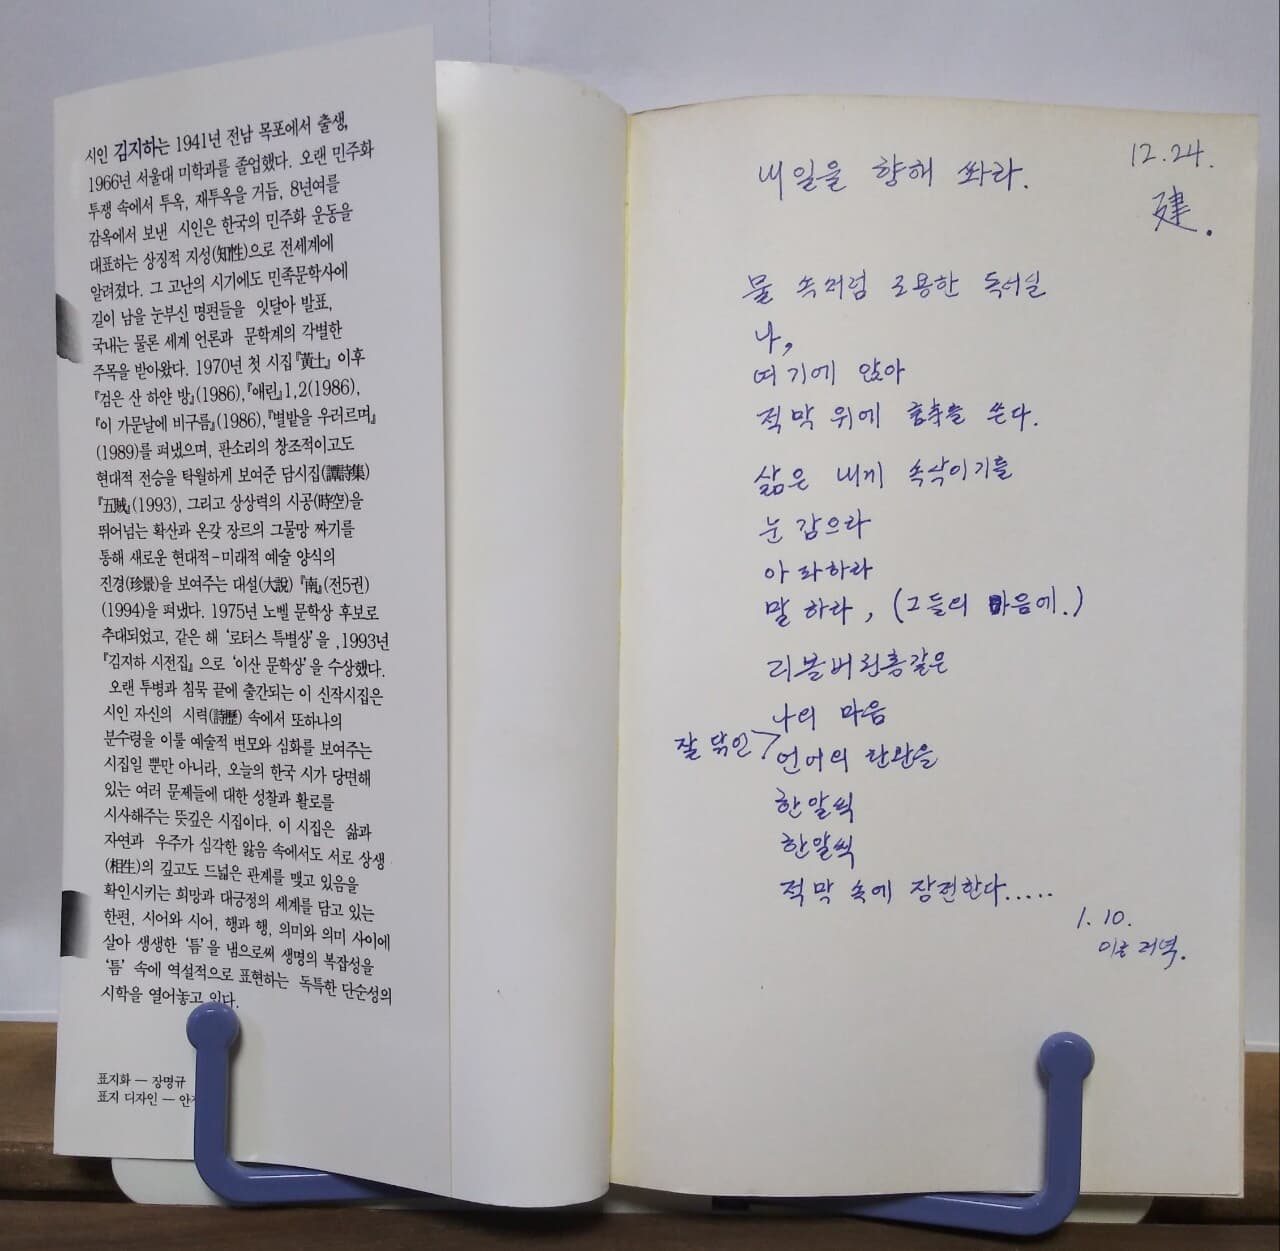 시인 김지하는 1941년 전남 목포에서 출생,
1966년 서울대 미학과를 졸업했다. 오랜 민주화
투쟁 속에서 투옥, 재투옥을 거듭, 8년여를
감옥에서 보낸 시인은 한국의 민주화 운동을
대표하는 상징적 지성(知性)으로 전세계에
알려졌다. 그 고난의 시기에도 민족문학사에
길이 남을 눈부신 명편들을 잇달아 발표,
국내는 물론 세계 언론과 문학계의 각별한
주목을 받아왔다. 1970년 첫 시집 『黃土』 이후
『검은 산 하얀 방』(1986), 『애린』 1, 2(1986),
『이 가문날에 비구름』(1986), 『별밭을 우러르며』
(1989)를 펴냈으며, 판소리의 창조적이고도
현대적 전승을 탁월하게 보여준 담시집(譚詩集)
『五賊』(1993), 그리고 상상력의 시공(時空)을
뛰어넘는 확산과 온갖 장르의 그물망 짜기를
통해 새로운 현대적-미래적 예술 양식의
진경(珍景)을 보여주는 대설(大說) 『南』(전5권)
(1994)을 펴냈다. 1975년 노벨 문학상 후보로
추대되었고, 같은 해 '로터스 특별상'을 ,1993년
『김지하 시전집』으로 '이산 문학상'을 수상했다.
오랜 투병과 침묵 끝에 출간되는 이 신작시집은
시인 자신의 시력(詩歷) 속에서 또하나의
분수령을 이룰 예술적 변모와 심화를 보여주는
시집일 뿐만 아니라, 오늘의 한국 시가 당면해
있는 여러 문제들에 대한 성찰과 활로를
시사해주는 뜻깊은 시집이다. 이 시집은 삶과
자연과 우주가 심각한 앓음 속에서도 서로 상생
(相生)의 깊고도 드넓은 관계를 맺고 있음을
확인시키는 희망과 대긍정의 세계를 담고 있는
한편, 시어와 시어, 행과 행, 의미와 의미 사이에
살아 생생한 '틈'을 냄으로써 생명의 복잡성을
'틈' 속에 역설적으로 표현하는 독특한 단순성의
시학을 열어놓고 있다.
표지화 — 장명규
표지 디자인 —
12.24.
建.
내일을 향해 쏴라.
물 속처럼 조용한 독서실
나,
여기에 앉아
적막 위에 쓴다.
삶은 내게 속삭이기를
눈 감으라
아파하라
말하라, (그들의 마음에.)
리볼버권총같은
나의 마음
잘 닦인
언어의 탄환을
한알씩
한알씩
적막 속에 장전한다.....
1. 10.
이른 저녁.